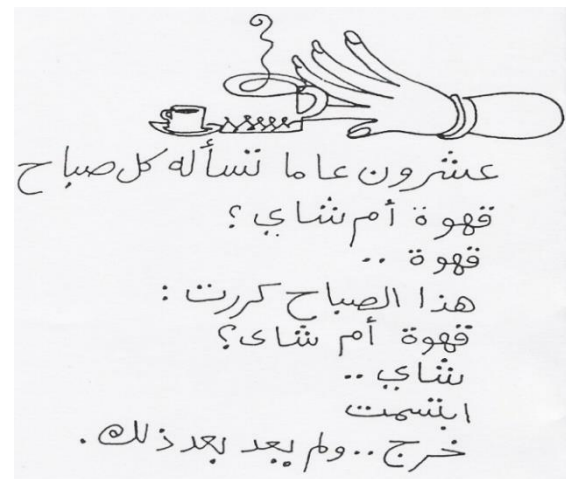 عشرون عاما تسأله كل صباح
قهوة أم شاي ؟
قهوة ..
هذا الصباح كررت :
قهوة أم شاى ؟
شاي ..
ابتسمت
خرج .. ولم يعد بعد ذلك .